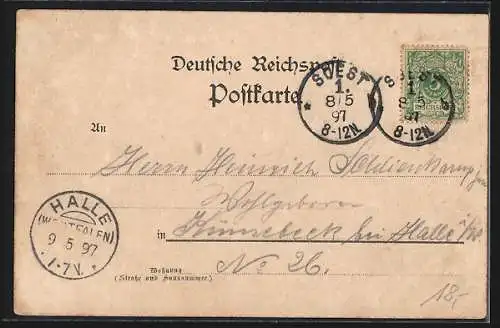 Deutsche Reichspost
Postkarte
SOEST
1.
8/5
97
8-12N.
SOEST
1.
8/5
97
8-12N.
An
Herrn Heinrich
Wohlgeboren
in Künsebeck bei Halle i/W.
No 26.
Wohnung
(Straße und Hausnummer)
HALLE
(WESTFALEN)
9 5 97
1-7V.
18,-